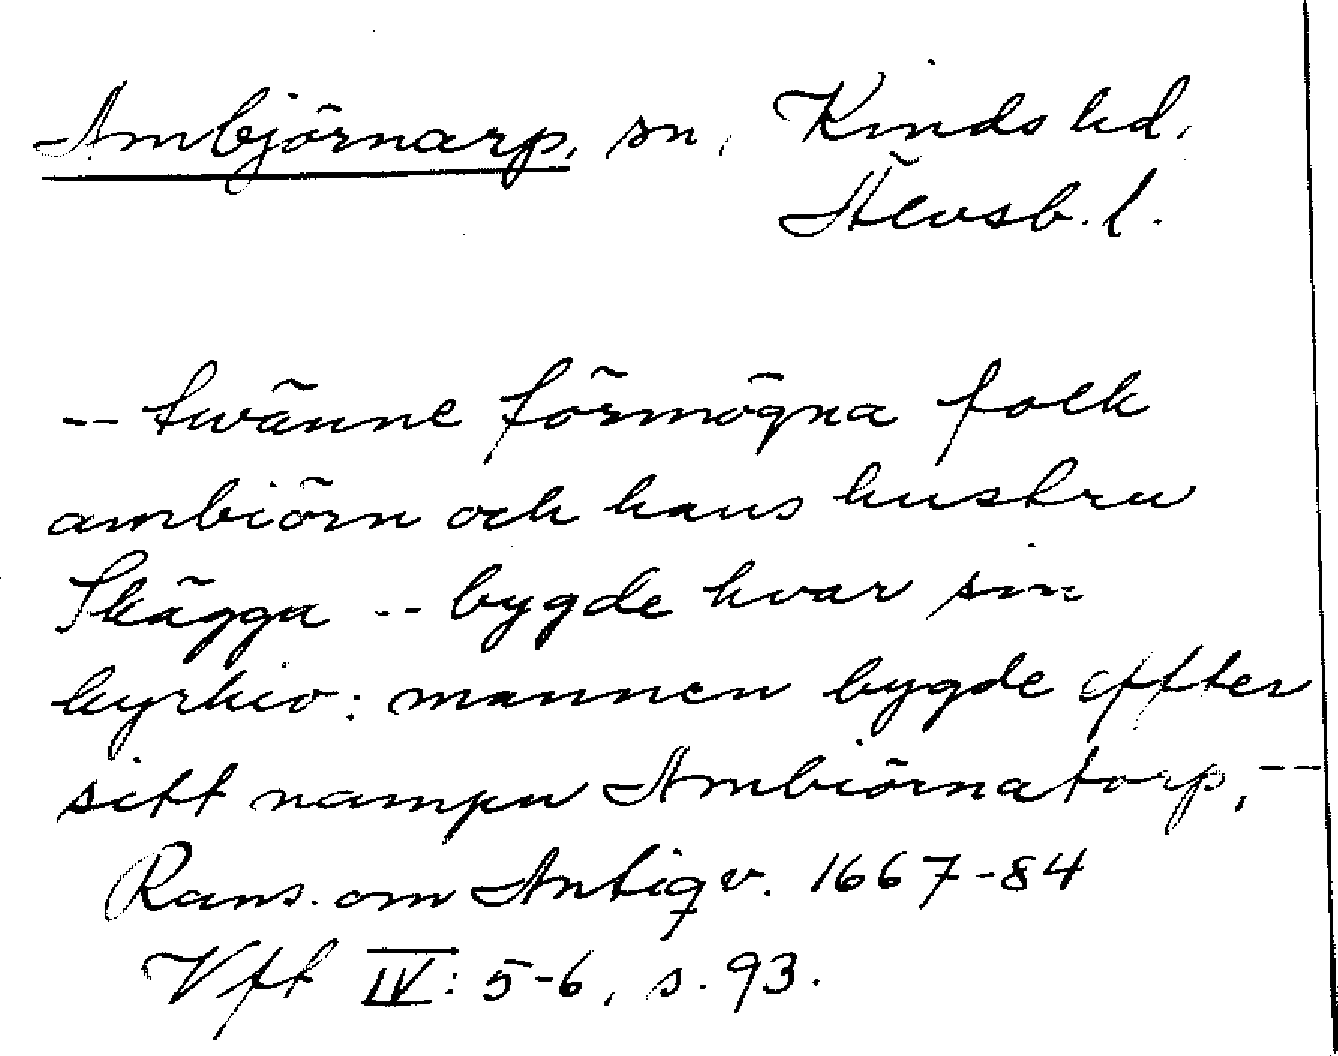 Ambjörnarp, sn, Kinds hd,
Älvsb. l.
-- twänne förmögna folk
ambiörn och hans hustru
Skägga -- bygde hvar sin
kyrkio: mannen bygde effter
sitt nampn Ambiörnatorp, --
Rans. om Antiqv. 1667-84
Vft IV: 5-6, s. 93.